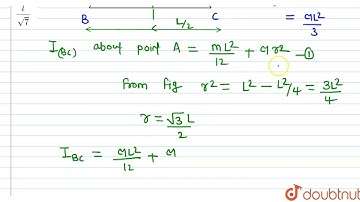 l
√7
B
C
L/2
= ML²/3
I(BC) about point A = mL²/12 + Mr² —①
from fig r² = L² - L²/4 = 3L²/4
r = √3L/2
IBC = ML²/12 + M
doubtnut